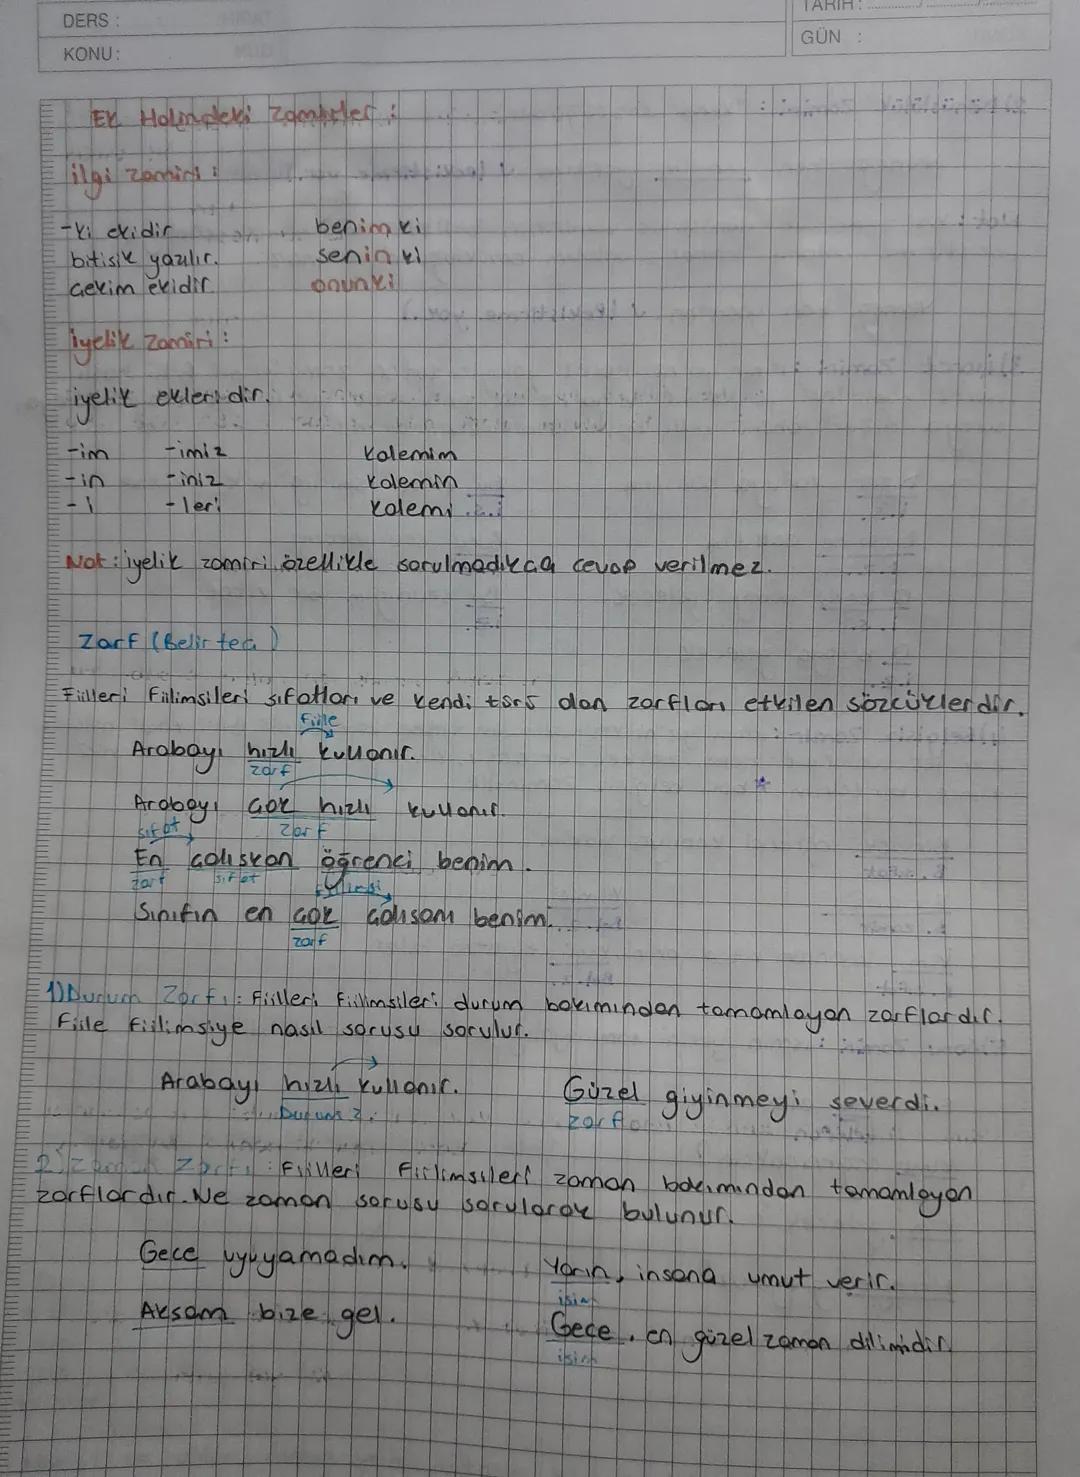 DERS :
KONU:
TARİH:
GÜN :
Ek Halindeki Zamirler :
ilgi zamiri :
-ki ekidir benim ki
bitişik yazılır. senin ki
çekim ekidir onunki
iyelik zamiri :
iyelik ekleridir.
-im -imiz kalemim
-in -iniz kalemin
-i -leri kalemi
Not : iyelik zamiri özellikle sorulmadıkça cevap verilmez.
Zarf (Belirteç)
Fiilleri fiilimsileri sıfatları ve kendi türü olan zarfları etkilen sözcüklerdir.
fiile
Arabayı hızlı kullanır.
zarf
Arabayı çok hızlı kullanır.
sıfat zarf
En çalışkan öğrenci benim.
zarf sıfat fiilimsi
Sınıfın en çok çalışanı benim.
zarf
1) Durum Zarfı : Fiilleri fiilimsileri durum bakımından tamamlayan zarflardır.
Fiile fiilimsiye nasıl sorusu sorulur.
Arabayı hızlı kullanır. Güzel giyinmeyi severdi.
Durum z. zarf
2) Zaman Zarfı : Fiilleri fiilimsileri zaman bakımından tamamlayan
zarflardır. Ne zaman sorusu sorularak bulunur.
Gece uyuyamadım. Yarın, insana umut verir.
isim
Akşam bize gel. Gece, en güzel zaman dilimidir
isim